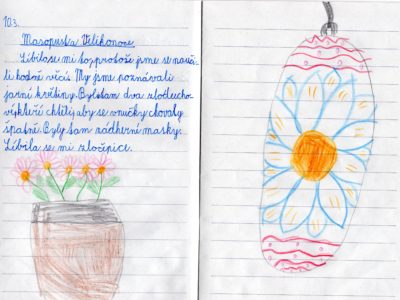 10.3.
Masopust a Velikonoce
Líbilo se mi to, protože jsme se nauči-
li hodně věcí. My jsme poznávali
jarní květiny. Byli tam dva
kteří chtěli, aby se ovečky chovaly
špatně. Byly tam nádherné masky.
Líbila se mi zlá